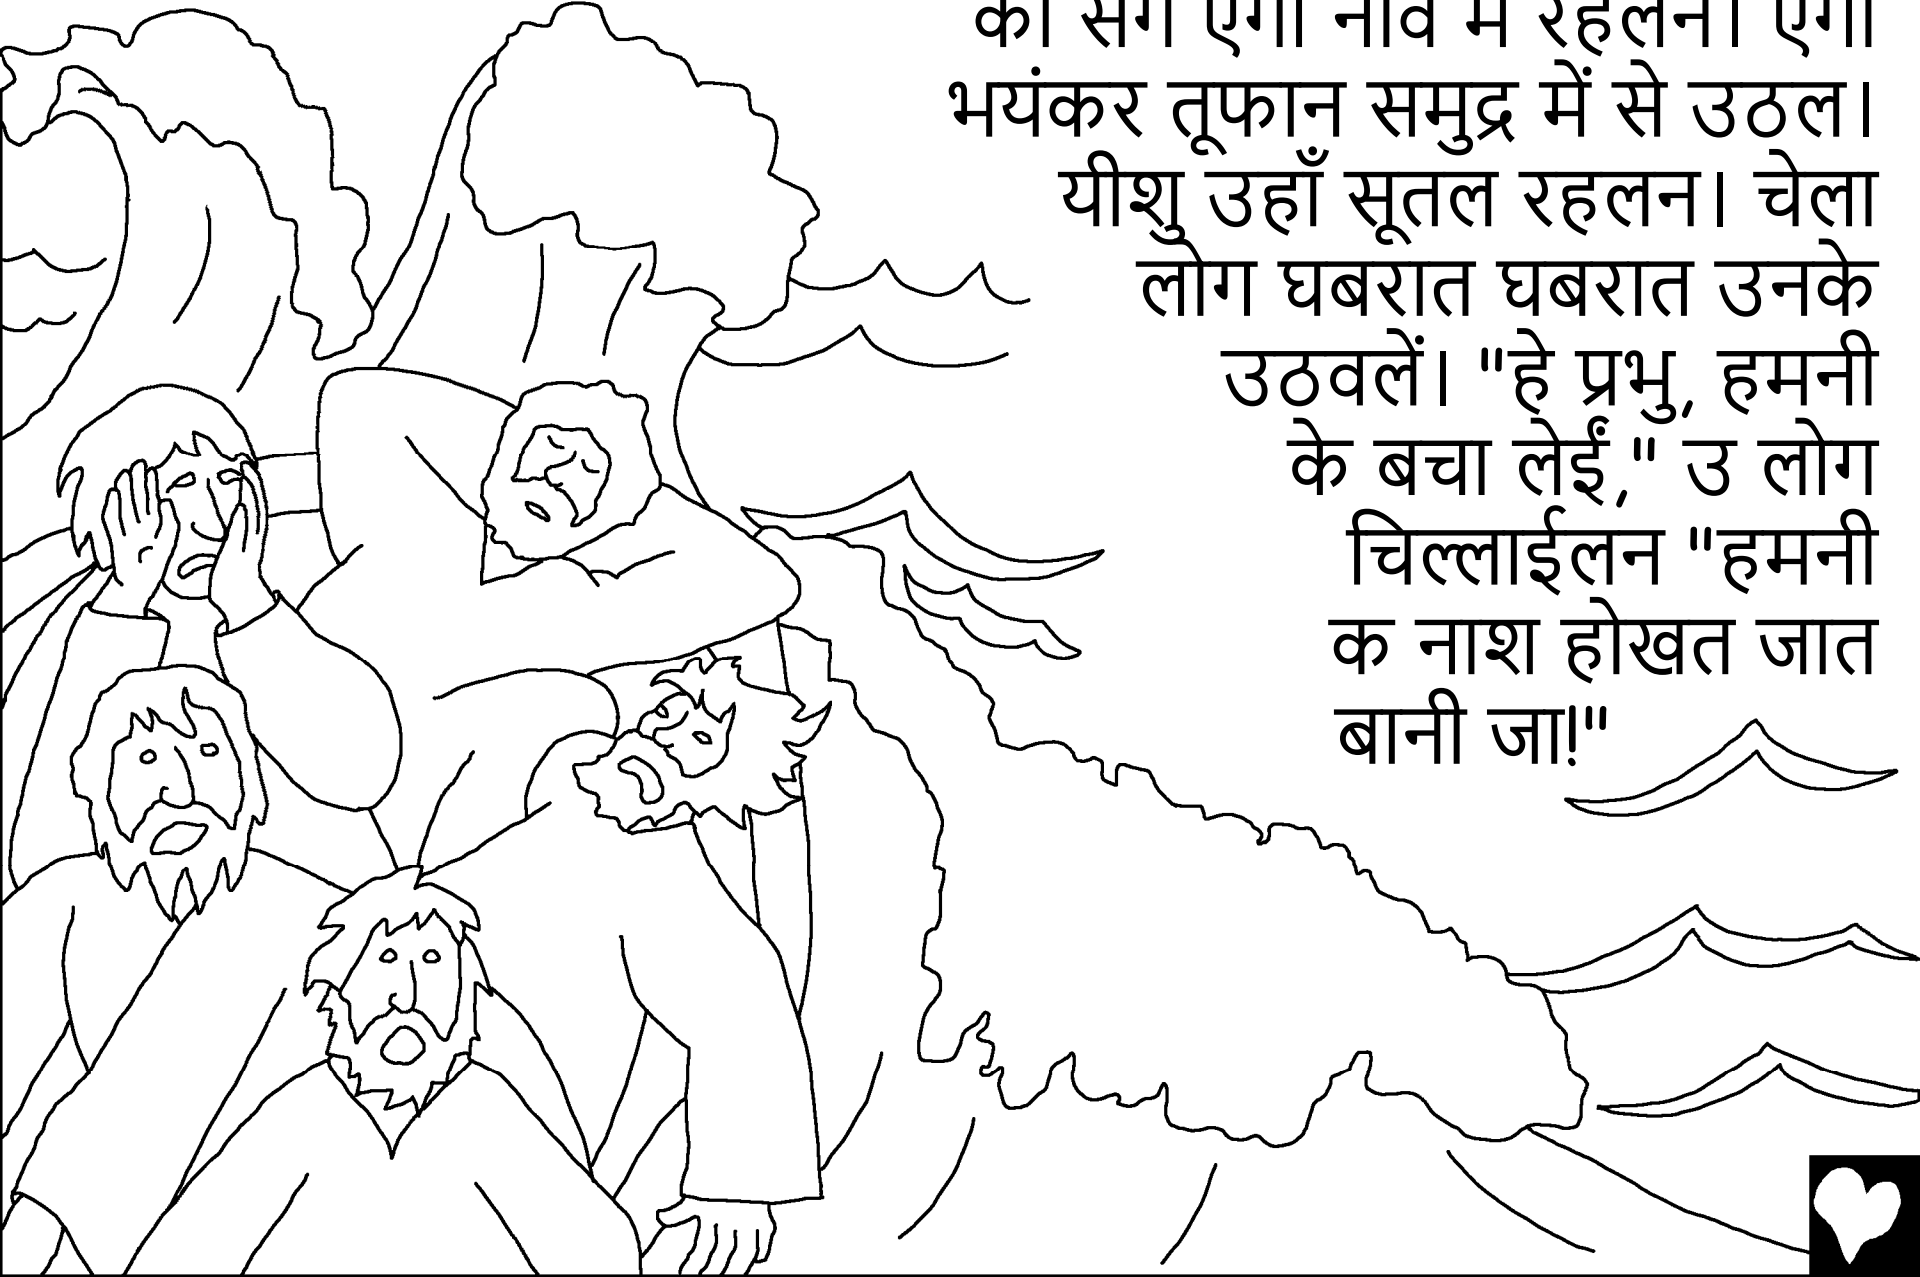 की संग एगो नाव में रहलन। एगो
भयंकर तूफान समुद्र में से उठल।
यीशु उहाँ सूतल रहलन। चेला
लोग घबरात घबरात उनके
उठवलें। "हे प्रभु, हमनी
के बचा लेईं," उ लोग
चिल्लाईलन "हमनी
क नाश होखत जात
बानी जा!"